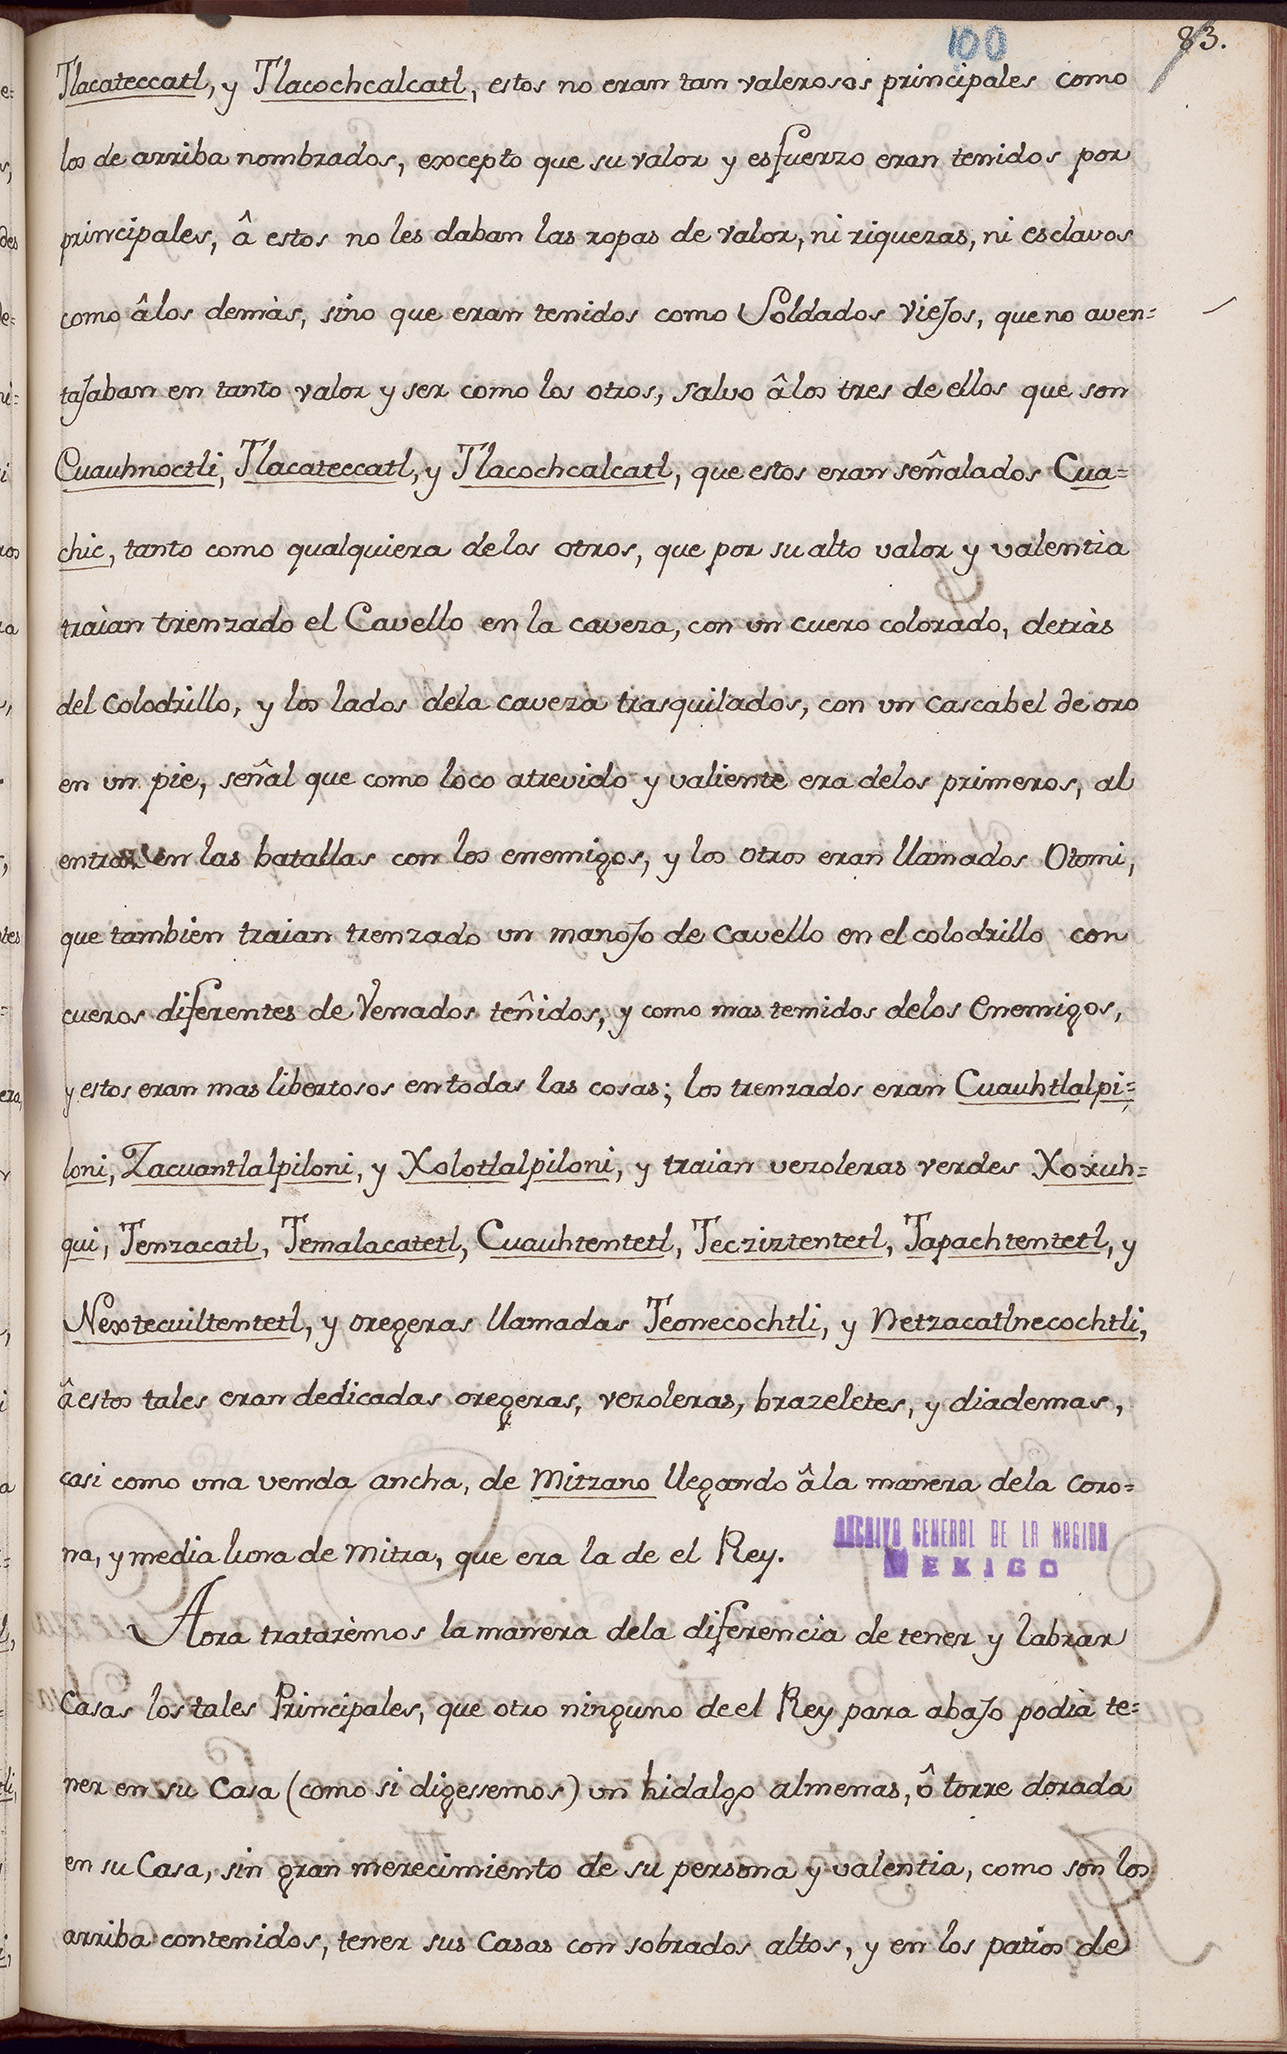 100 83.
Tlacateccatl, y Tlacochcalcatl, estos no eran tan valerosos principales como
los de arriba nombrados, excepto que su valor y esfuerzo eran tenidos por
principales, â estos no les daban las ropas de valor, ni riquezas, ni esclavos
como âlos demàs, sino que eran tenidos como Soldados Viejos, que no aven=
tajaban en tanto valor y ser como los otros, salvo âlos tres de ellos que son
Cuauhnoctli, Tlacateccatl, y Tlacochcalcatl, que estos eran señalados Cua=
chic, tanto como qualquiera delos otros, que por su alto valor y valentìa
traìan trenzado el Cavello en la caveza, con un cuero colorado, detràs
del colodrillo, y los lados dela caveza trasquilados, con un cascabel de oro
en un pie, señal que como loco atrevido y valiente era delos primeros, al
entrar en las batallas con los enemigos, y los otros eran llamados Otomi,
que tambien traian trenzado un manojo de cavello en el colodrillo con
cueros diferentes de Venados teñidos, y como mas temidos delos Enemigos,
y estos eran mas libertosos en todas las cosas; los trenzados eran Cuauhtlalpi=
loni, Zacuantlalpiloni, y Xolotlalpiloni, y traian vezoleras verdes Xoxuh=
qui, Tenzacatl, Temalacatetl, Cuauhtentetl, Tecziztentetl, Tapachtentetl, y
Nextecuiltentetl, y oregeras llamadas Teonecochtli, y Netzacatlnecochtli,
â estos tales eran dedicadas oregeras, vezoleras, brazeletes, y diademas,
casi como una venda ancha, de Mitzano llegando âla manera dela coro=
na, y media luna de Mitra, que era la de el Rey.
ARCHIVO GENERAL DE LA NACION
MEXICO
Aora tratarèmos la manera dela diferencia de tener y labrar
Casas los tales Principales, que otro ninguno de el Rey para abajo podìa te=
ner en su Casa (como si digessemos) un hidalgo almenas, ô torre dorada
en su Casa, sin gran merecimiento de su persona y valentìa, como son los
arriba contenidos, tener sus Casas con sobrados altos, y en los patios de